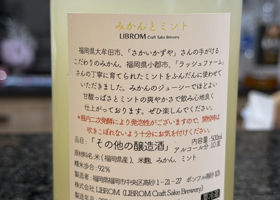 みかんとミント
LIBROM Craft Sake Brewery
福岡県大牟田市、「さかいかずや」さんの手がける
こだわりのみかん。福岡県小郡市、「ラッシュファーム」
さんの丁寧に育てられたミントをふんだんに使わせて
いただきました。みかんのジューシーでほどよい
甘酸っぱさとミントの爽やかさで飲み心地良く
仕上がっております。ぜひ楽しんでください。
※瓶内二次発酵により発泡性がございますので、開栓時は
吹きこぼれないよう十分にお気を付けください。
品目：「その他の醸造酒」
500ml
アルコール分10度
原材料名：米（福岡県産）、米麹、みかん、ミント
精米歩合：92%
製造者：福岡県福岡市中央区
株式会社LIBROM（LIBROM Craft Sake Brewery）
製造